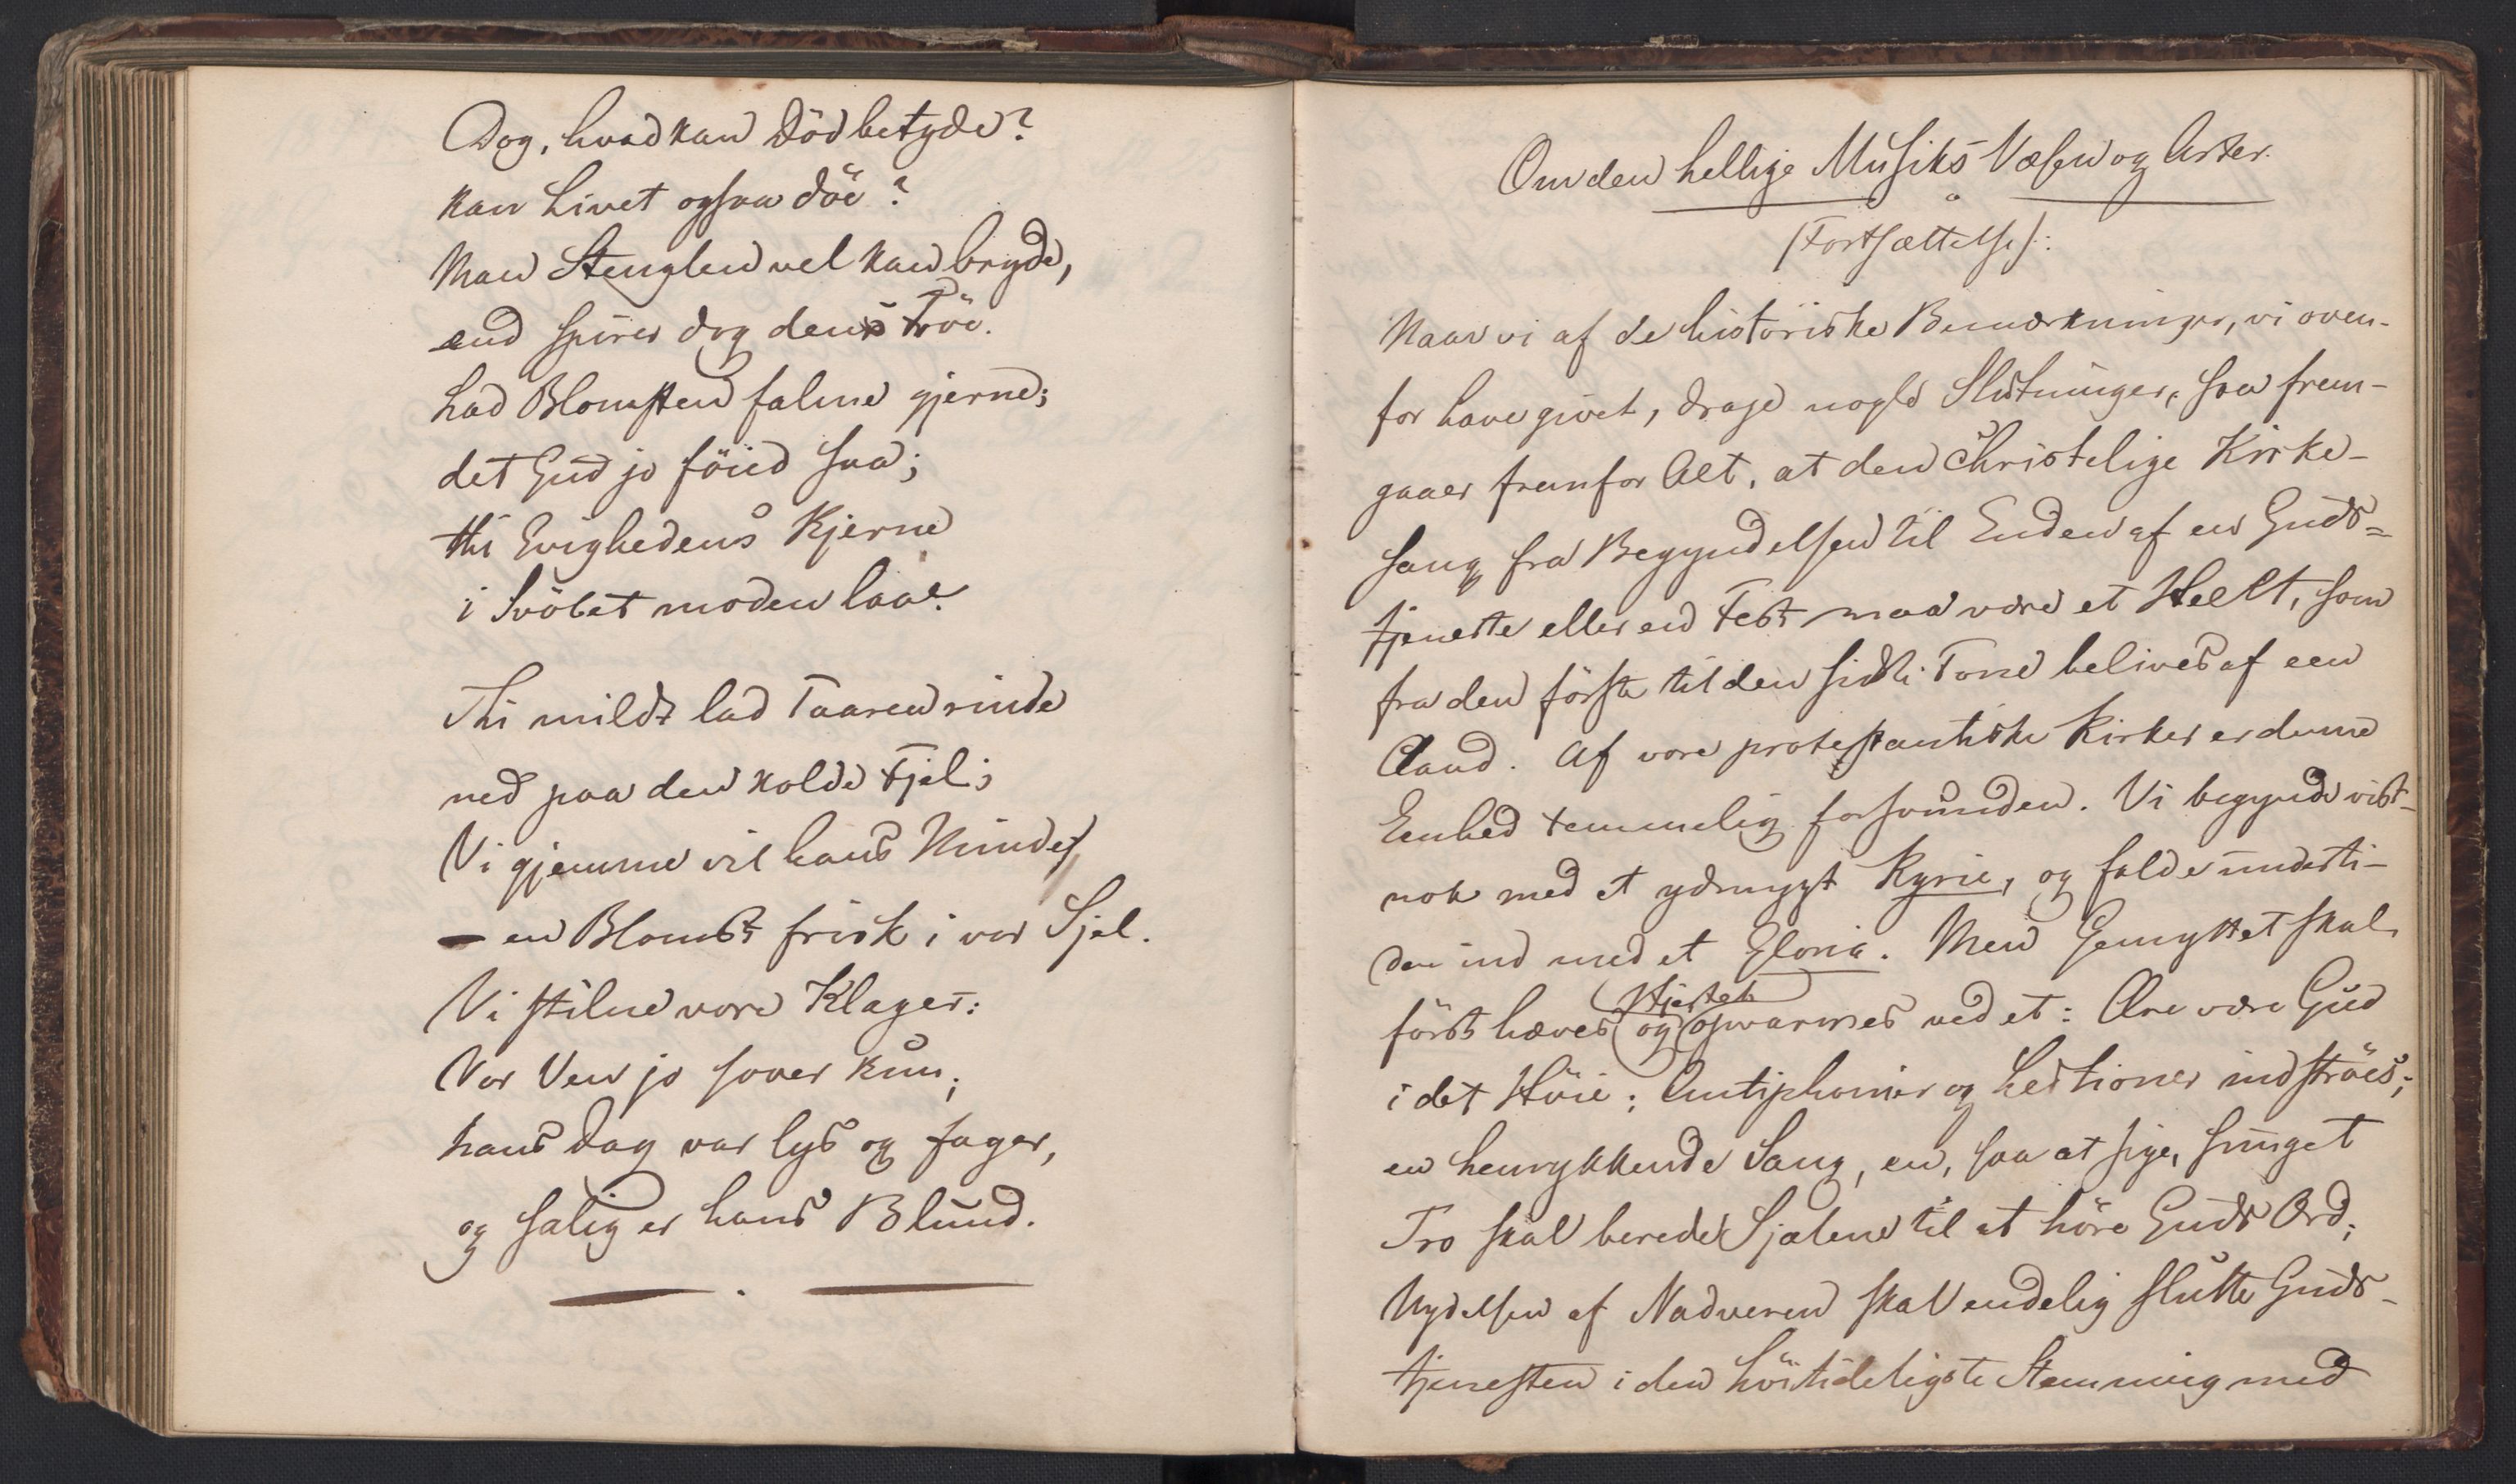 Dog, hvad kan Död betyde?
kan Livet ogsaa döe?
Man Stenglen vel kan bryde,
end spirer dog dens Fröe.
Lad Blomsten falme gjerne;
det Gud jo föied saa;
thi Evighedens Kjerne
i Svöbet moden laae.
Thi mildt lad Taaren rinde
ned paa den kolde Fjel;
Vi gjemme vil hans Minde
– en Blomst frisk i vor Sjel.
Vi stilne vore Klager:
Vor Ven jo sover kun;
hans Dag var lys og fager,
og salig er hans Blund.
Om den hellige Musiks Væsen og Arter.
(Fortsættelse):
Naar vi af de historiske Bemærkninger, vi oven-
for have givet, drage nogle Slutninger, saa frem-
gaaer fremfor Alt, at den christelige Kirke-
sang fra Begyndelsen til Enden af en Guds-
tjeneste eller en Fest maa være et Heelt, som
fra den förste til den sidste Tone belives af een
Aand. Af vore protestantiske Kirker er denne
Eenhed temmelig forsvunden. Vi begynde vist-
nok med et ydmygt Kyrie, og falde undertī-
den ind med et Gloria. Men Gemyttet skal
Hjertet
först hæves og opvarmes ved et: Ære være Gud
i det Höie; Antiphonier og Lectioner indströes;
en henrykkende Sang, en, saa at sige, sunget
Tro skal berede Sjælene til at höre Guds Ord;
Nydelsen af Nadveren skal endelig slutte Guds-
tjenesten i den höitideligste Stemning med